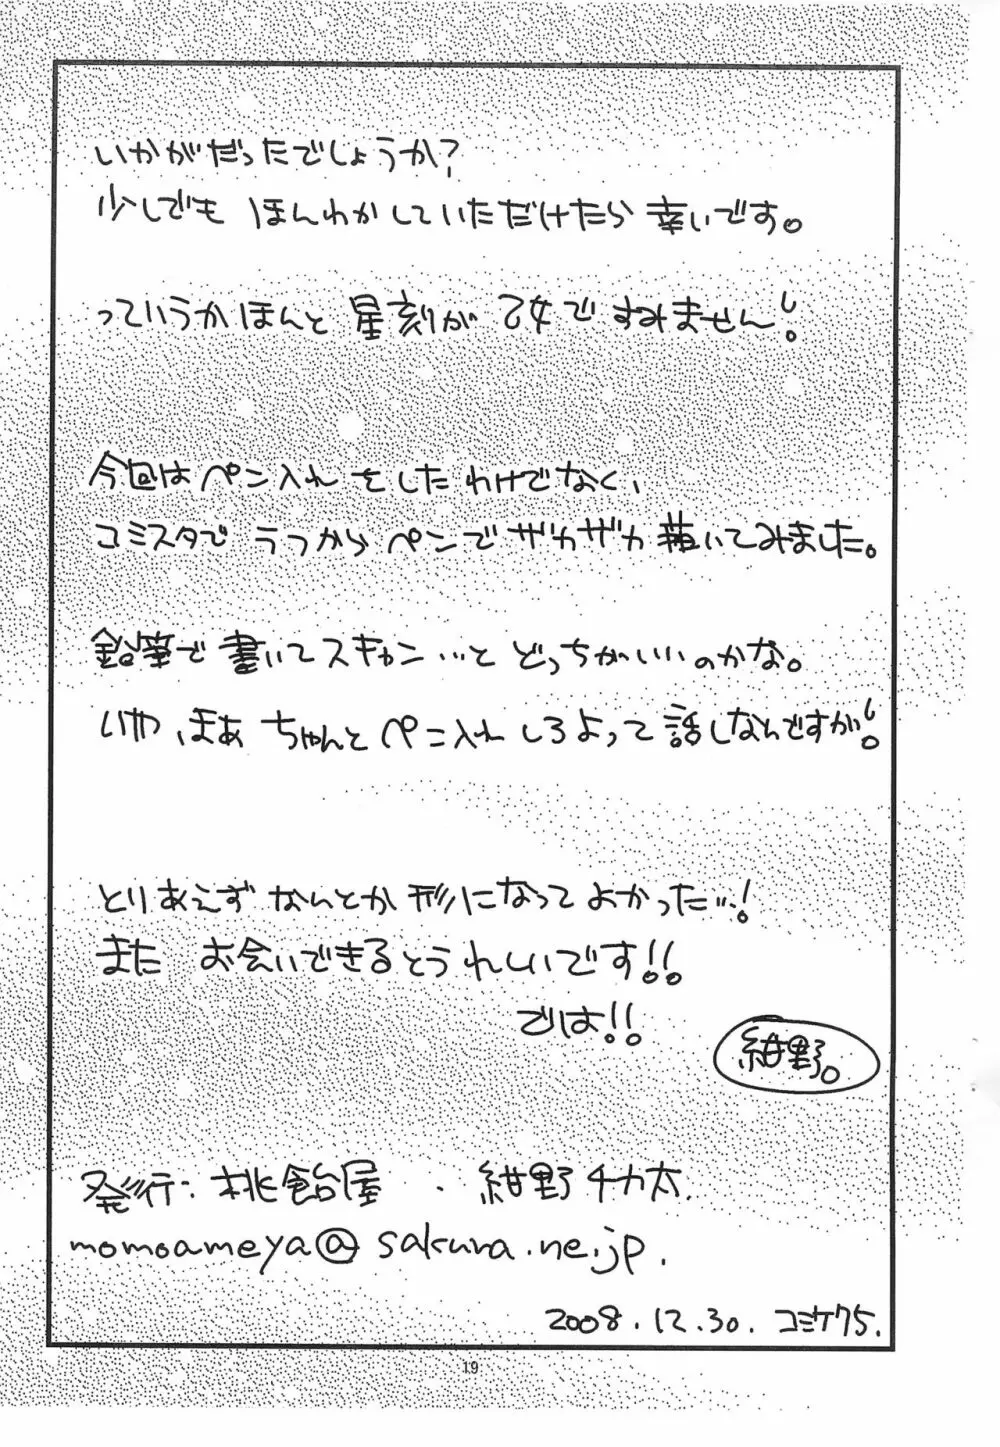 いかがだったでしょうか?
少しでも ほんわかしていただけたら 幸いです。
っていうかほんと 星刻が 乙女で すみません!
今回はペン入れ をした わけでなく、
コミスタで うっつから ペンで ザカザカ 描いてみました。
鉛筆で 書いて スキャン…と どっちがいいのかな。
いや、まあ ちゃんと ペン入れ しろよって 話しなんですが!
とりあえず なんとか 形になって よかった…!
また お会いできるとうれしいです!!
では!!
紺野。
発行: 桃飴屋 . 紺野チカ太.
momoameya@sakura.ne.jp.
2008.12.30. コミケ75.
19